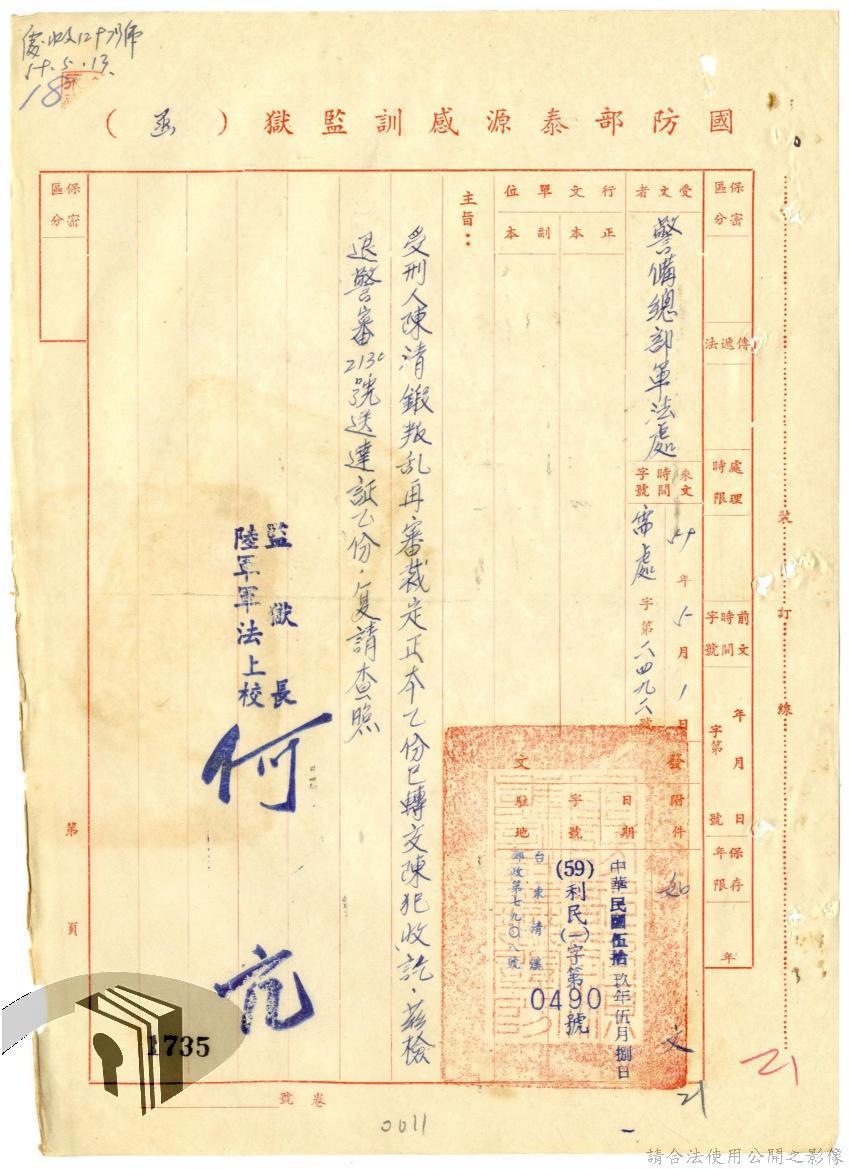 59.5.13.
18
國防部泰源感訓監獄（函）
保密區分
傳遞法
處理時限
前文時間字號
年 月 日
字第 號
保存年限
年
裝 訂 線
受文者
警備總部軍法處
來文時間字號
59年5月1日
字第六四九六號
行文單位
正本
副本
發文
附件
如文
日期
中華民國伍拾玖年伍月捌日
字號
(59)利民(一)字第0490號
駐地
台東清溪
郵政第七九〇八號
主旨：
受刑人陳清鍛叛乱再審裁定正本乙份已轉交陳犯收訖，茲檢
退警審2130號送達証乙份，复請查照
監獄長
陸軍軍法上校
何亮
保密區分
第 頁
1735
卷 號
0011
21
21
請合法使用公開之影像